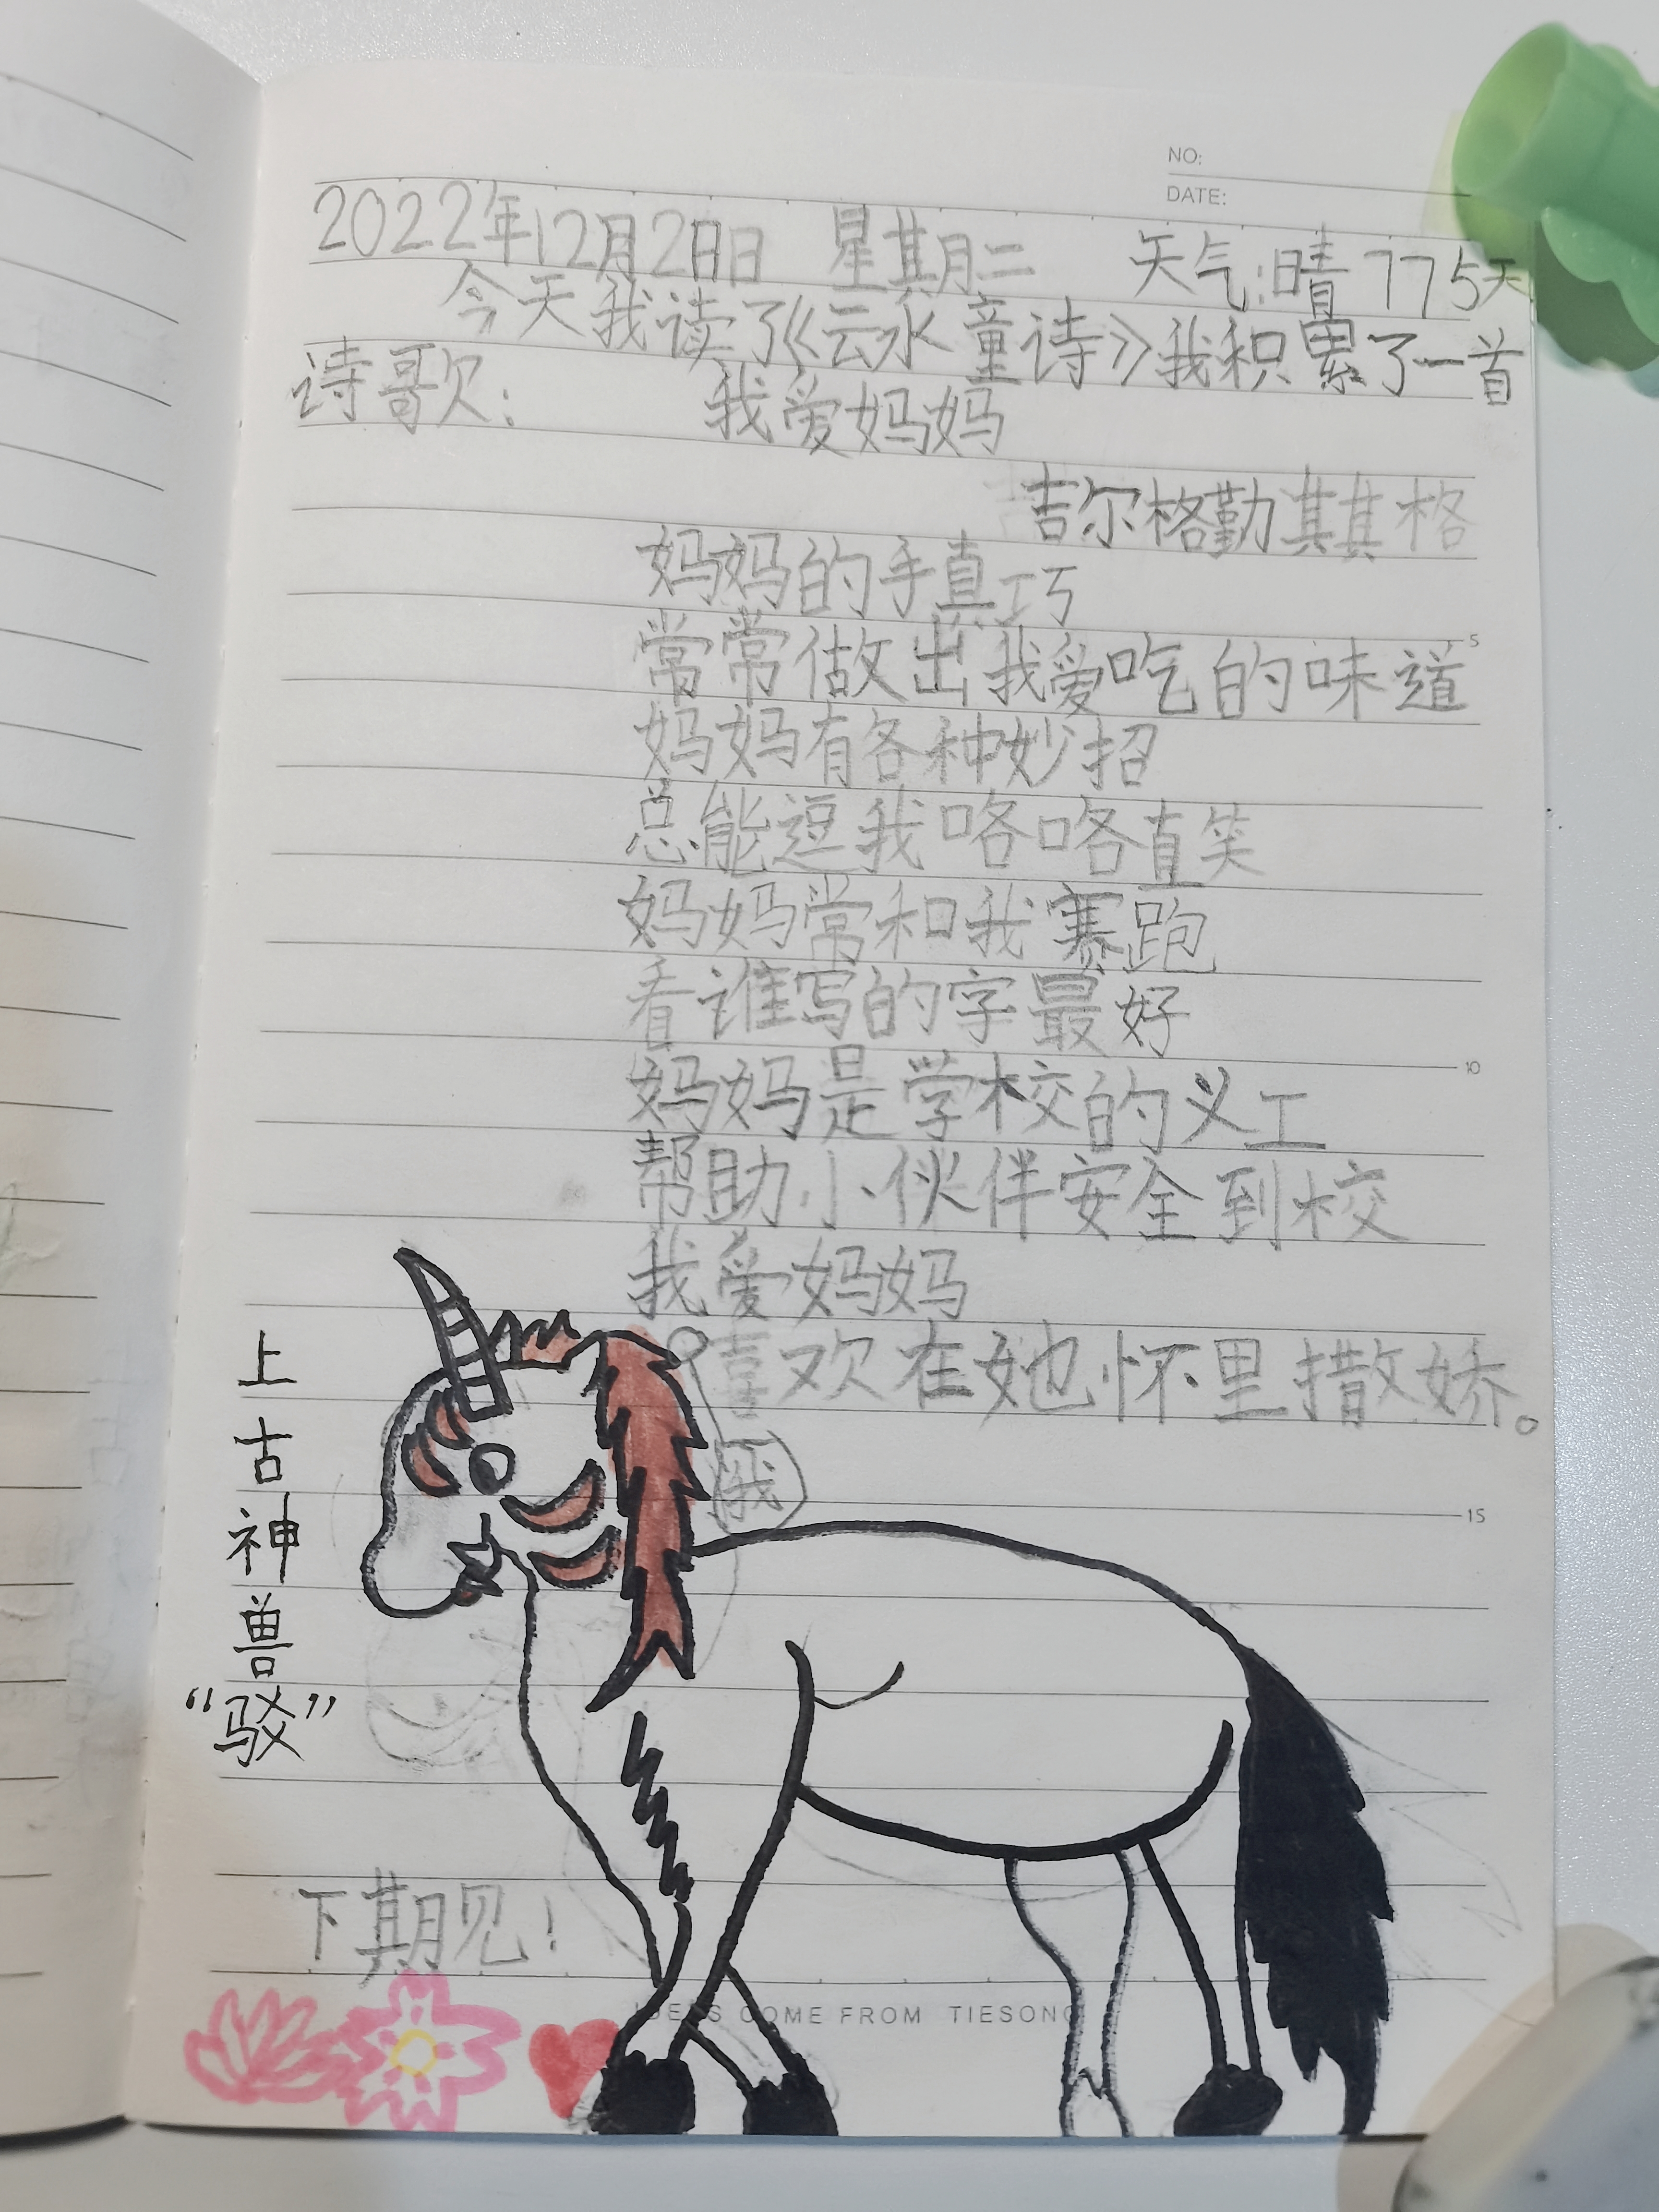 NO:
DATE:
2022年12月2日日 星期二 天气:晴 775天
今天我读了《云水童诗》我积累了一首
诗歌: 我爱妈妈
吉尔格勤其其格
妈妈的手真巧
常常做出我爱吃的味道
5
妈妈有各种妙招
总能逗我咯咯直笑
妈妈常和我赛跑
看谁写的字最好
10
妈妈是学校的义工
帮助小伙伴安全到校
我爱妈妈
喜欢在她怀里撒娇。
我
15
上古神兽
“驳”
下期见!
IDEAS COME FROM TIESONG